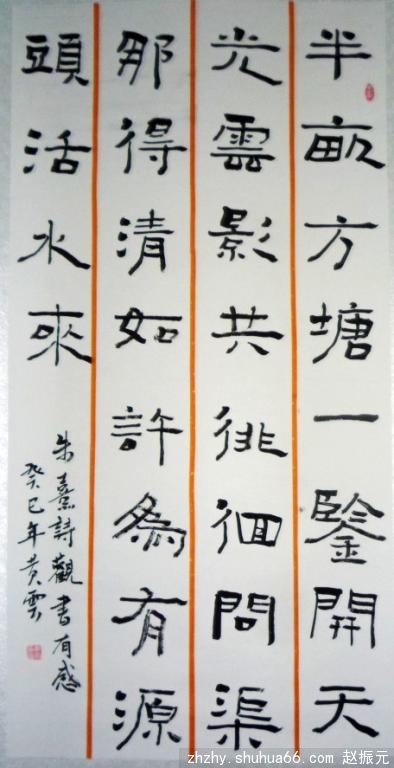 半畝方塘一鑒開天
光雲影共徘徊問渠
那得清如許為有源
頭活水來
朱熹詩觀書有感
癸巳年黄雲
zhzhy.shuhua66.com 赵振元